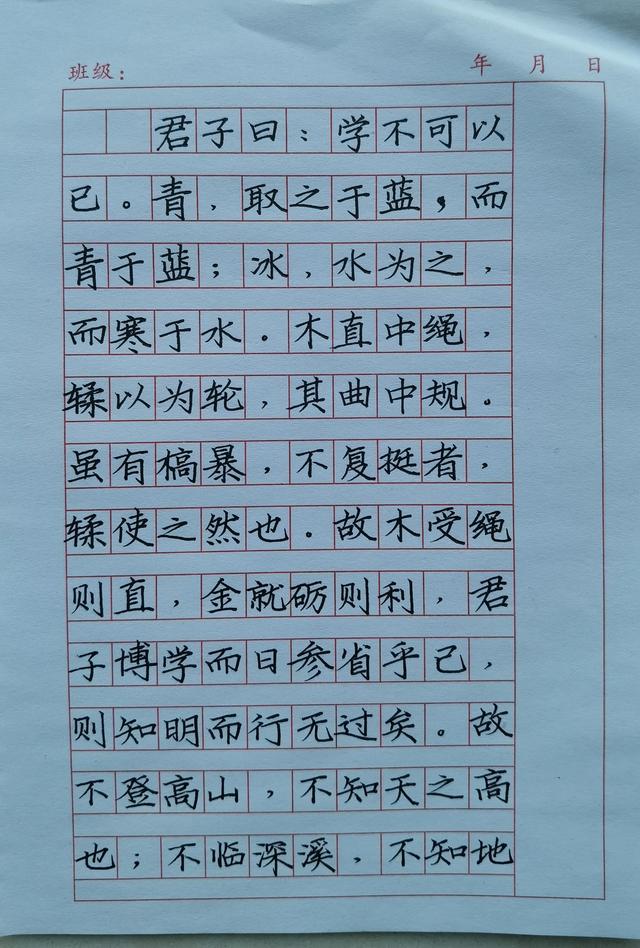 班级： 年 月 日
君子曰：学不可以
已。青，取之于蓝，而
青于蓝；冰，水为之，
而寒于水。木直中绳，
𫐓以为轮，其曲中规。
虽有槁暴，不复挺者，
𫐓使之然也。故木受绳
则直，金就砺则利，君
子博学而日参省乎己，
则知明而行无过矣。故
不登高山，不知天之高
也；不临深溪，不知地